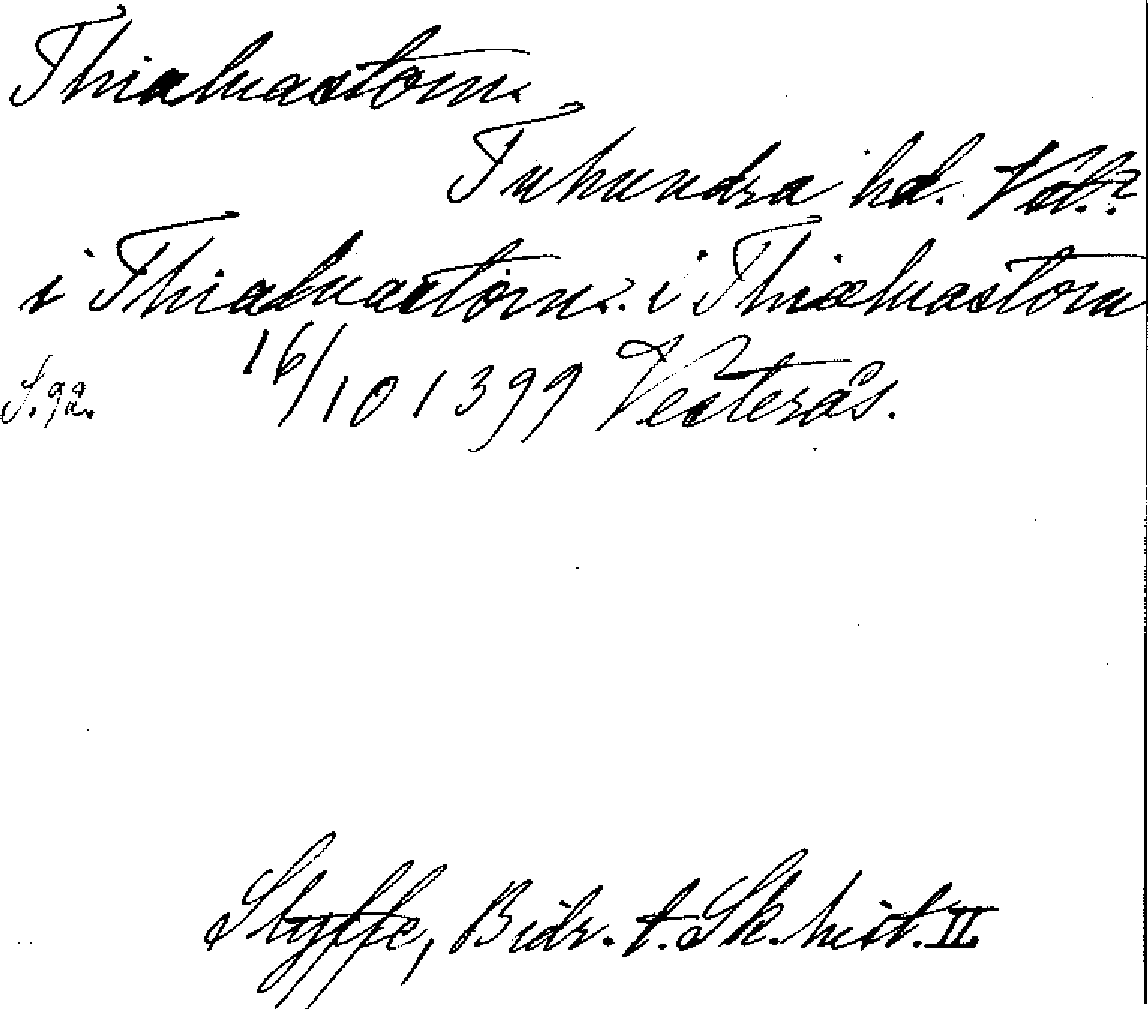 Thialuastom.
Tuhundra hd. Vstl.?
i Thialuastom. i Thiæluastom
16/10 1399 Vesterås.
S. 92.
Styffe, Bidr. t. Sk. hist. II